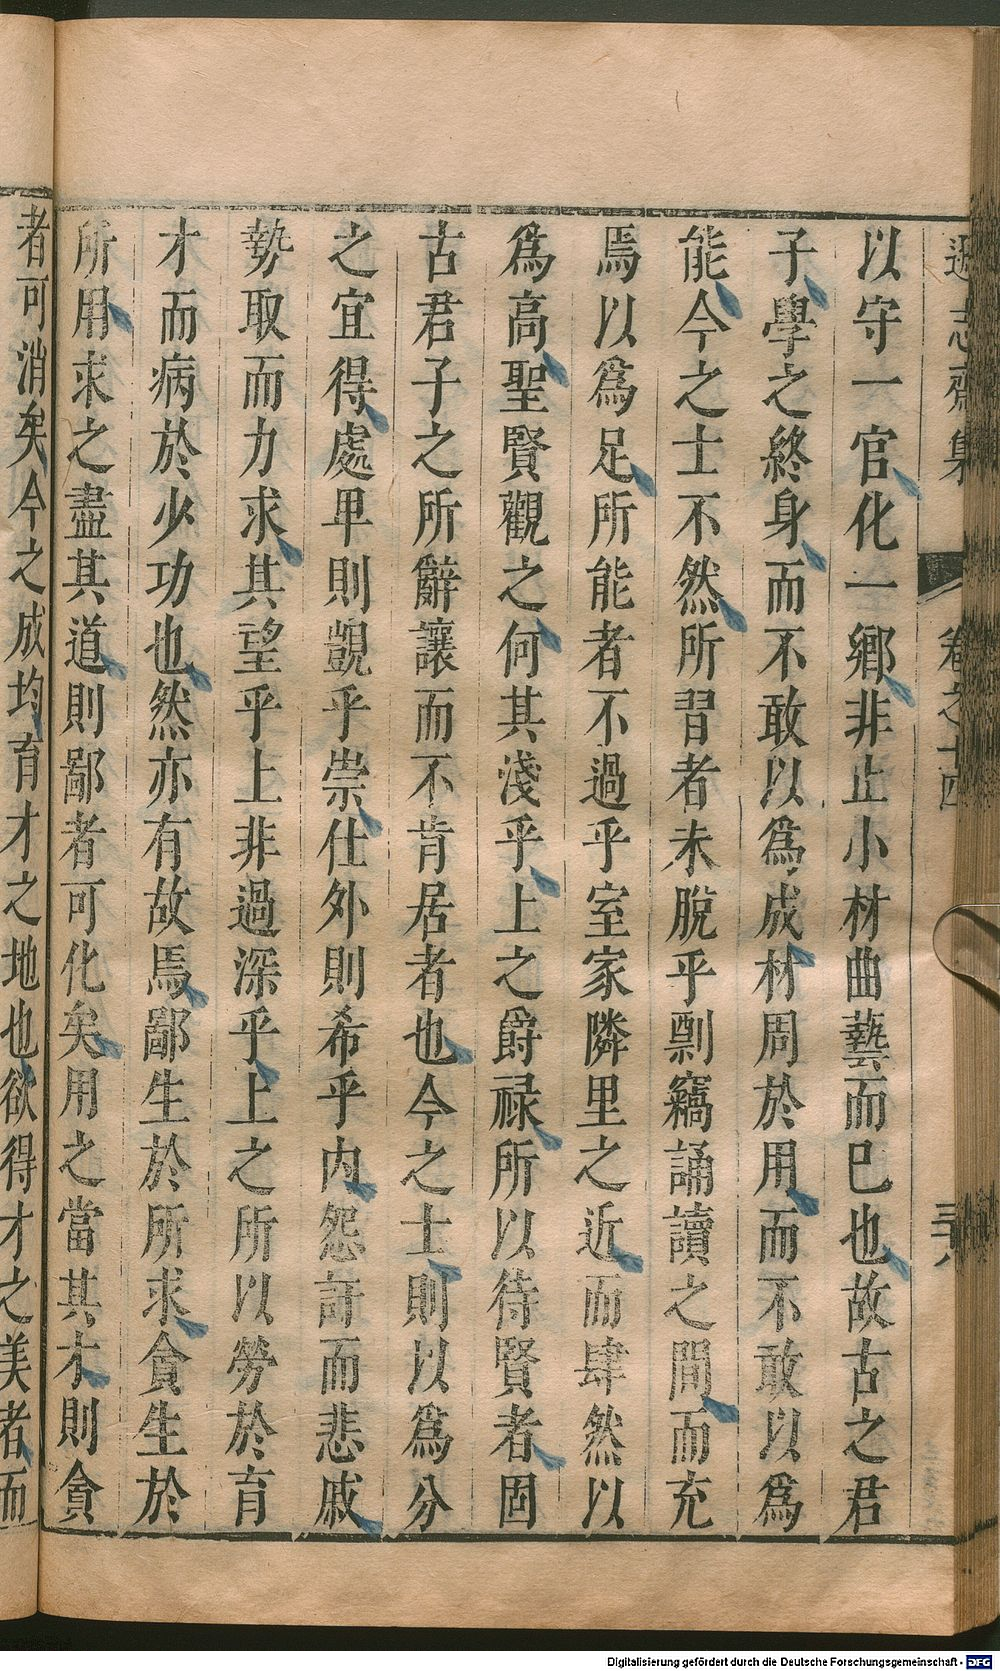 遜志齋集 卷之十四
以守一官化一鄉非止小材曲藝而已也故古之君
子學之終身而不敢以爲成材周於用而不敢以爲
能今之士不然所習者未脫乎剽竊誦讀之間而充
焉以爲足所能者不過乎室家隣里之近而肆然以
爲高聖賢觀之何其淺乎上之爵祿所以待賢者固
古君子之所辭讓而不肯居者也今之士則以爲分
之宜得處卑則覬乎崇仕外則希乎内怨訐而悲戚
勢取而力求其望乎上非過深乎上之所以勞於育
才而病於少功也然亦有故焉鄙生於所求貪生於
所用求之盡其道則鄙者可化矣用之當其才則貪
者可消矣今之成均育才之地也欲得才之美者而
Digitalisierung gefördert durch die Deutsche Forschungsgemeinschaft - DFG